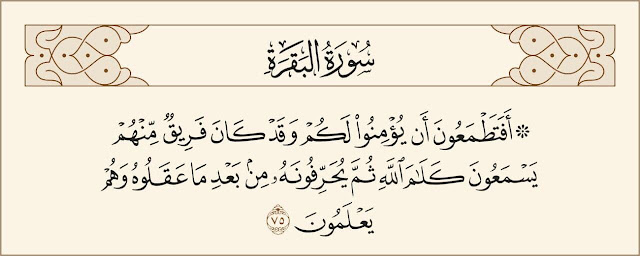 سُورَةُ البَقَرَةِ
۞ أَفَتَطْمَعُونَ أَن يُؤْمِنُوا۟ لَكُمْ وَقَدْ كَانَ فَرِيقٌ مِّنْهُمْ
يَسْمَعُونَ كَلَـٰمَ ٱللَّهِ ثُمَّ يُحَرِّفُونَهُۥ مِنۢ بَعْدِ مَا عَقَلُوهُ وَهُمْ
يَعْلَمُونَ ٧٥